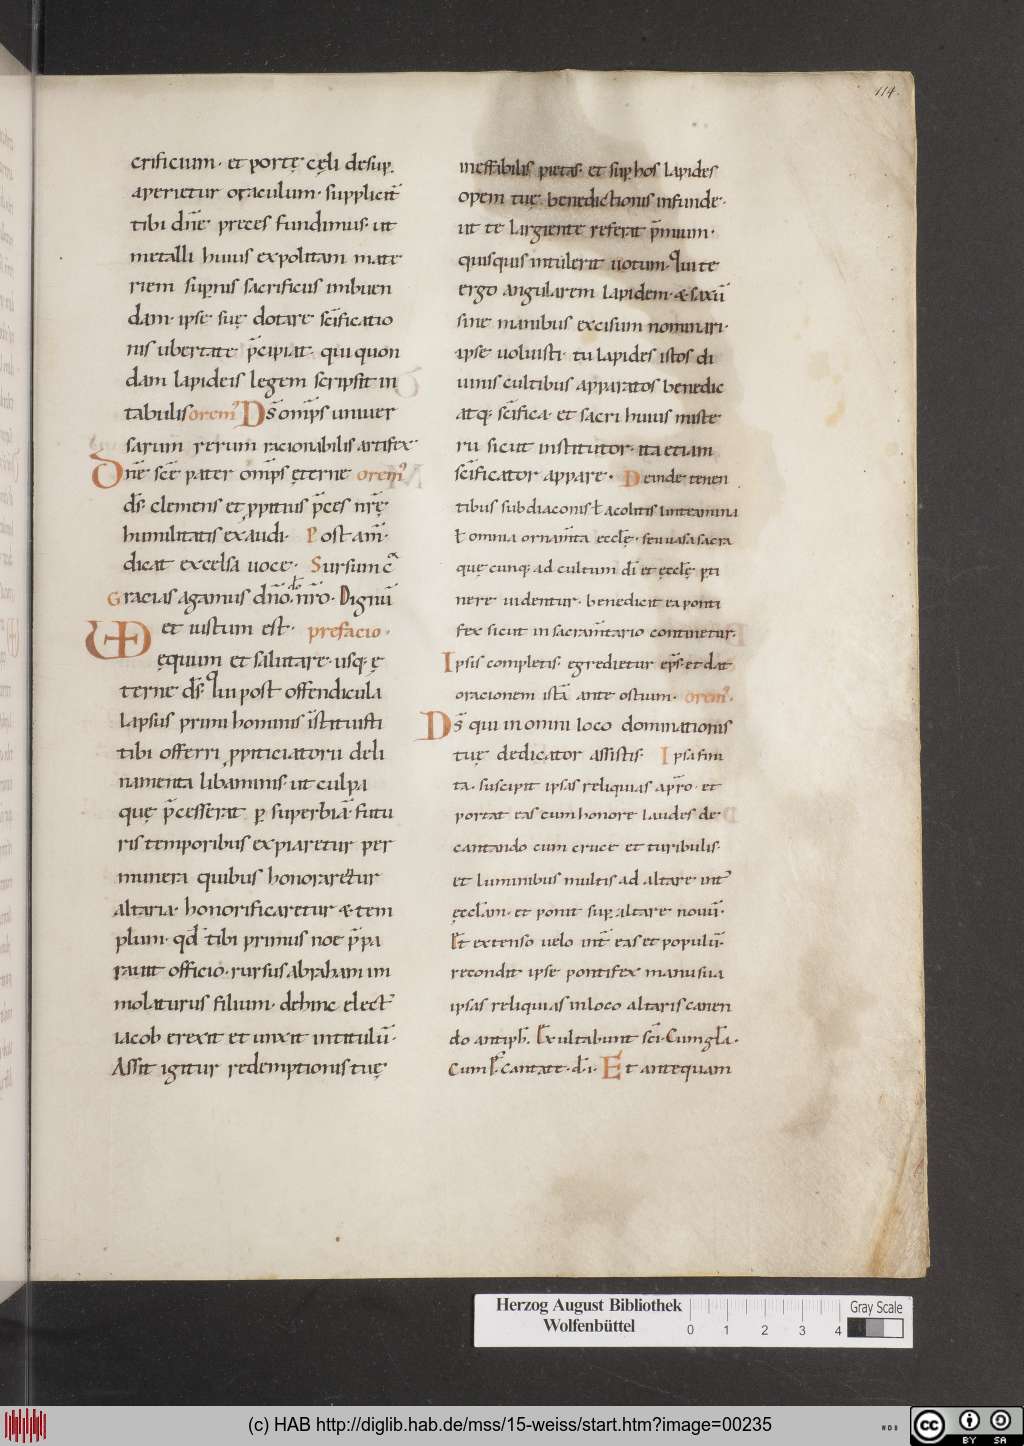 114.
crificium· et portę cęli desup.
aperietur oraculum· supplicit̄
tibi dn̄e preces fundimus· ut
metalli huius expolitam mate
riem supnis sacrificiis imbuen
dam· ipse suę dotare sc̄ificatio
nis ubertate p̄cipiat· qui quon
dam lapideis legem scripsit in
tabulis orem᾿ Ds̄ omp̄s uniuer
sarum rerum racionabilis artifex
Dn̄e sc̄e pater omp̄s ęterne orem᾿
ds̄· clemens et ppitius p̄ces nr̄ę·
humilitatis exaudi· Post am̄·
dicat excelsa uoce· Sursum c̄
Gracias agamus dn̄o· do nr̄o· Dignū
et iustum est· prefacio·
VE ęquum et salutare· usq· ę
terne ds̄· Qui post offendicula
lapsus primi hominis īstituisti
tibi offerri ppiticiatorii deli
namenta libaminis· ut culpa
quę p̄cesserat p superbiā· futu
ris temporibus expiaretur per
munera quibus honoraretur
altaria· honorificaretur & tem
plum· qd̄ tibi primus noe p̄pa
rauit officio· rursus abraham im
molaturus filium· dehinc elect᾿
iacob erexit et unxit in titulū·
Assit igitur redemptionis tuę
ineffabilis pietas· et sup hos lapides
opem tuę benedictionis infunde·
ut te largiente referat p̄mium·
quisquis intulerit uotum· Qui te
ergo angularem lapidem· & saxū
sine manibus excisum nominari·
ipse uoluisti· tu lapides istos di
uinis cultibus apparatos benedic
atq· sc̄ifica· et sacri huius miste
rii sicut institutor· ita etiam
sc̄ificator appare· Deinde tenen
tibus subdiaconis ł acolitis linteamina
ł omnia ornam̄ta eccłę· seu uasa sacra
quę cunq· ad cultum dī et ęccłę pti
nere uidentur· benedicit ea ponti
fex sicut in sacram̄tario continetur·
Ipsis completis· egredietur ep̄s· et dat
oracionem istā ante ostium· orem᾿·
Ds̄ qui in omni loco dominationis
tuę dedicator assistis· Ipsa fini
ta· suscipit ipsas reliquias a pr̄o· et
portat eas cum honore laudes de
cantando cum cruce et turibulis·
et luminibus multis ad altare· int᾿
ęccłam· et ponit sup altare nouū·
Et extenso uelo int᾿ eas et populū·
recondit ipse pontifex manu sua
ipsas reliquias in loco altaris canen
do antiph̄. Exultabunt sc̄i· Cum gła·
Cum ps̄· Cantate· d· i· Et antequam
Herzog August Bibliothek
Wolfenbüttel
0 1 2 3 4
Gray Scale
(c) HAB http://diglib.hab.de/mss/15-weiss/start.htm?image=00235
WDB
cc BY SA